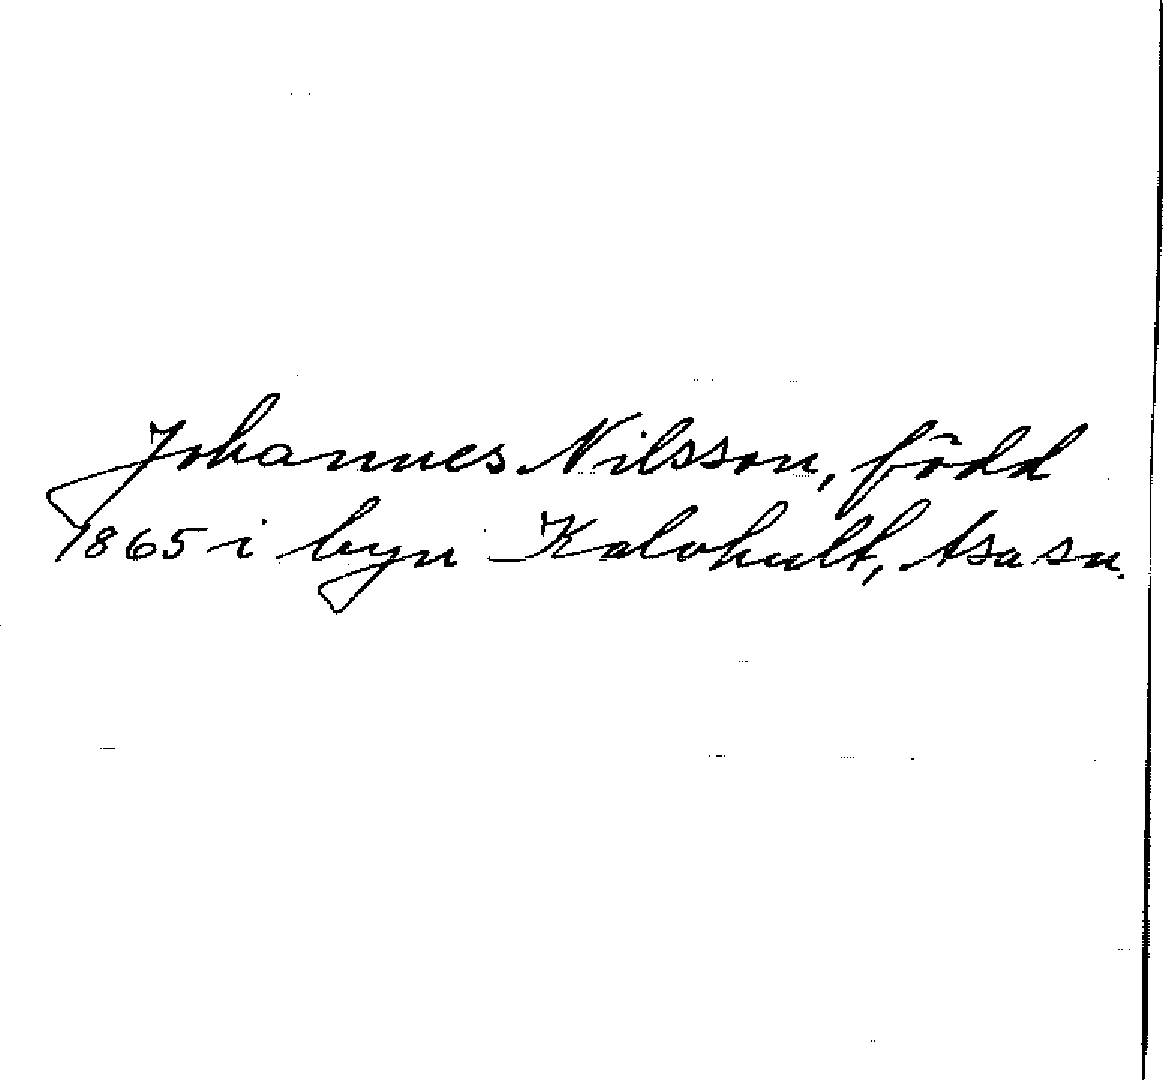 Johannes Nilsson, född
1865 i byn Kalvhult, Asa sn.